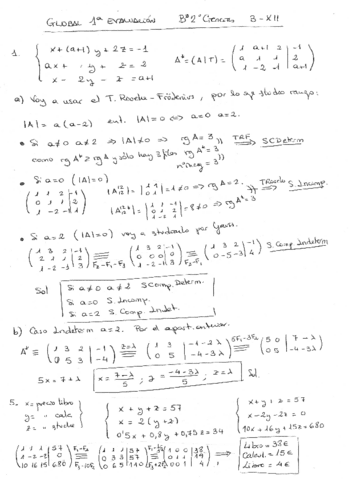 GLOBAL 1ª EVALUACIÓN Bº2º Ciencias 3-XII
1. { x + (a+1) y + 2z = -1
ax + y + z = 2
x - 2y - z = a+1
A* = (A|T) = ( 1 a+1 2 | -1
a 1 1 | 2
1 -2 -1 | a+1 )
a) Voy a usar el T. Rouché-Fröbenius, por lo que
|A| = a(a-2) ent. |A| = 0 <=> a=0 a=2.
• Si a≠0 a≠2 => |A|≠0 => rg A = 3 TRF => SC Determ
como rg A* ≥ rg A y sólo hay 3 filas rg A* = 3
n° incog = 3
• Si a=0 (|A|=0)
( 1 1 2 | -1
0 1 1 | 2
1 -2 -1 | 1 )
= 1 ≠ 0 => rg A = 2.
= 8 ≠ 0 => rg A* = 3
S. Incomp.
• Si a=2 (|A|=0) voy a estudiarlo por Gauss.
( 1 3 2 | -1
2 1 1 | 2
1 -2 -1 | 3 )
( 1 3 2 | -1
0 0 0 | 0
1 -2 -1 | 3 )
( 1 3 2 | -1
0 -5 -3 | 4 )
S. Comp Indeterm
Sol
Si a≠0 a≠2 S Comp. Determ.
Si a=0 S. Incomp.
Si a=2 S. Comp. Indet.
b) Caso Indeterm a=2. Por el apart. anterior.
A* ≡ ( 1 3 2 | -1
0 5 3 | -4 )
z=λ
( 1 3 | -1-2λ
0 5 | -4-3λ )
5F₁-3F₂
( 5 0 | 7-λ
0 5 | -4-3λ )
5x = 7-λ x = 7-λ / 5 ; y = -4-3λ / 5 ; z = λ Sol.
5. x = precio libro
y = " calc
z = " estuche
{ x + y + z = 57
x = 2(y+z)
0'5x + 0,8y + 0,75z = 34
{ x + y + z = 57
x - 2y - 2z = 0
10x + 16y + 15z = 680
( 1 1 1 | 57
1 -2 -2 | 0
10 16 15 | 680 )
( 1 1 1 | 57
0 3 3 | 57
0 6 5 | 110 )
( 1 0 0 | 38
0 1 1 | 19
0 0 1 | 4 )
=>
Libro = 38€
Calcul. = 15€